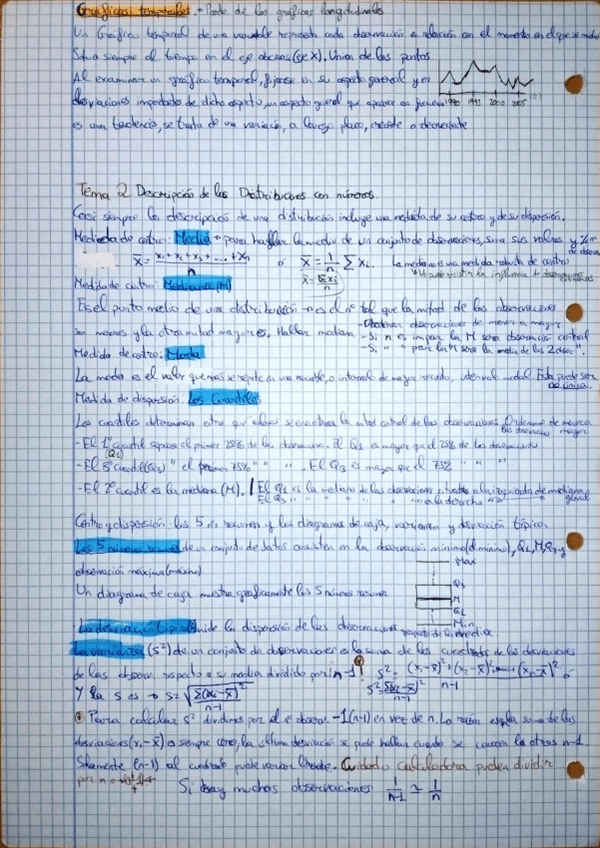 Gráficos temporales. → Parte de los gráficos longitudinales
Un Gráfico temporal de una variable representa cada observación en relación con el momento en el que se midió
Situa siempre el tiempo en el eje abcisas (eje X). Union de los puntos.
Al examinar un gráfico temporal, fijarse en su aspecto general y en
desviaciones importantes de dicho aspecto, un aspecto general que aparece con frecuencia
es una tendencia, se trata de una variación, a largo plazo, creciente o decreciente
1990 1995 2000 2005
Tema 2 Descripción de las Distribuciones con números
Casi siempre la descripción de una distribución incluye una medida de su centro y de su dispersión.
Medida de centro: Media → para hallar la media de un conjunto de observaciones, suma sus valores y
x̄ = x₁ + x₂ + x₃ + ... + xₙ / n o x̄ = 1/n ∑ xᵢ La media no es una medida robusta de centro
x̄ = ∑xᵢ/n la influencia de observaciones
Medida de centro: Mediana (M)
Es el punto medio de una distribución → es el nº tal que la mitad de las observaciones
son menores y la otra mitad mayores. Hallar mediana - Ordenar observaciones de menor a mayor
- Si n es impar la M será observación central
Medida de centro: Moda - Si " " par la M será la media de las 2 obser".
La moda es el valor que más se repite en una variable, o intervalo de mayor intervalo modal Esta puede ser
no única.
Medida de dispersión Los Cuartiles
Los cuartiles determinan entre que valores se encuentra la mitad central de las observaciones Ordenar de menor a
mayor
- El 1º cuartil separa el primer 25% de las observaciones. El Q₁ es mayor que el 25% de las observaciones
(Q₁)
- El 3º cuartil (Q₃) " el primer 75% " " ". El Q₃ es mayor que el 75% " " "
- El 2º cuartil es la mediana (M). / El Q₁ es la mediana de las observaciones situadas a la izquierda de mediana
El Q₃ " " " " " " a la derecha " " general
Centro y dispersión: los 5 nºs resumen y los diagramas de caja, varianza y desviación típica
Los 5 números resumen de un conjunto de datos consisten en la observación mínima (el mínimo), Q₁, M, Q₃ y
observación máxima (máximo)
Max
Un diagrama de caja muestra gráficamente los 5 números resumen
Q₃
M
Q₁
Min
La desviación típica mide la dispersión de las observaciones respecto de la media
La varianza (s²) de un conjunto de observaciones es la suma de los cuadrados de las desviaciones
de las obser. respecto a su media dividido por n-1! s² = (x₁-x̄)² + (x₂-x̄)² + ... + (xₙ-x̄)² / n-1 o
Y la s es → s = √∑(xᵢ-x̄)²/n-1 s² = ∑(xᵢ-x̄)²/n-1
Para calcular s² dividimos por el nº observ. -1 (n-1) en vez de n. La razón es q la suma de las
desviaciones (xᵢ-x̄) es siempre cero, la última desviación se puede hallar cuando se conocen las otras n-1
Solamente (n-1) al cuadrado puede variar libremente. Cuidado calculadora pueden dividir
por n
Si hay muchas observaciones 1/n-1 ≃ 1/n